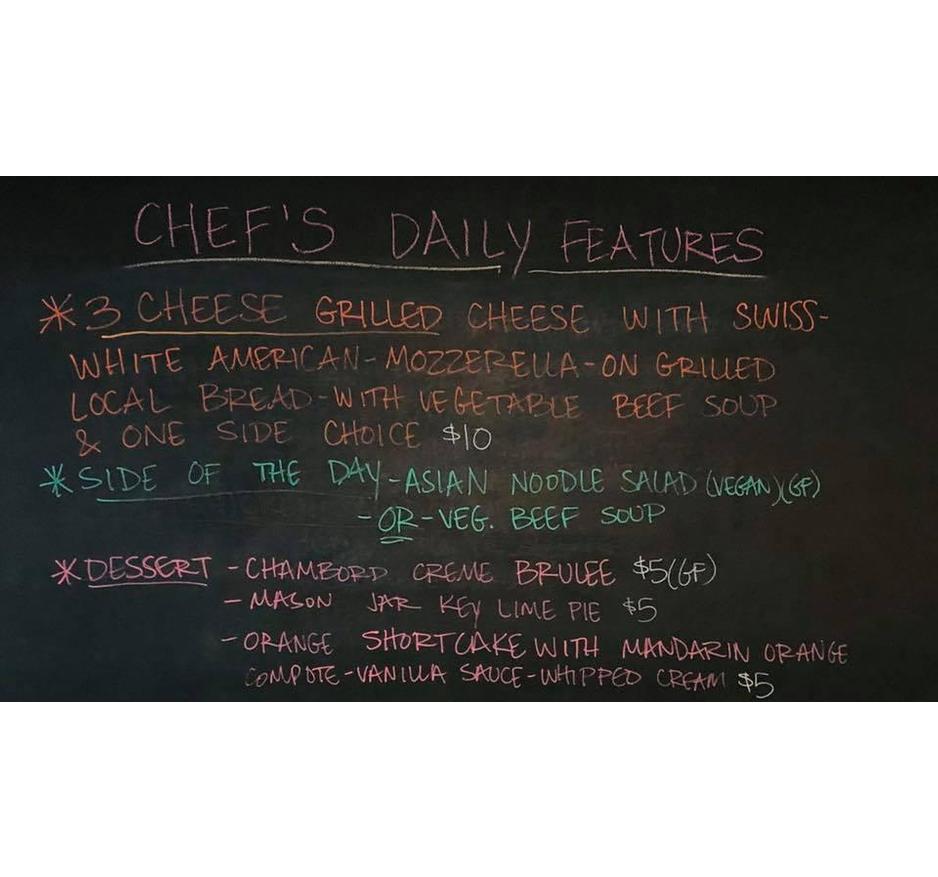 CHEF'S DAILY FEATURES
* 3 CHEESE GRILLED CHEESE WITH SWISS-
WHITE AMERICAN-MOZZERELLA-ON GRILLED
LOCAL BREAD-WITH VEGETABLE BEEF SOUP
& ONE SIDE CHOICE $10
* SIDE OF THE DAY-ASIAN NOODLE SALAD (VEGAN)(GF)
-OR-VEG. BEEF SOUP
* DESSERT -CHAMBORD CREME BRULEE $5(GF)
- MASON JAR KEY LIME PIE $5
- ORANGE SHORTCAKE WITH MANDARIN ORANGE
COMPOTE-VANILLA SAUCE-WHIPPED CREAM $5